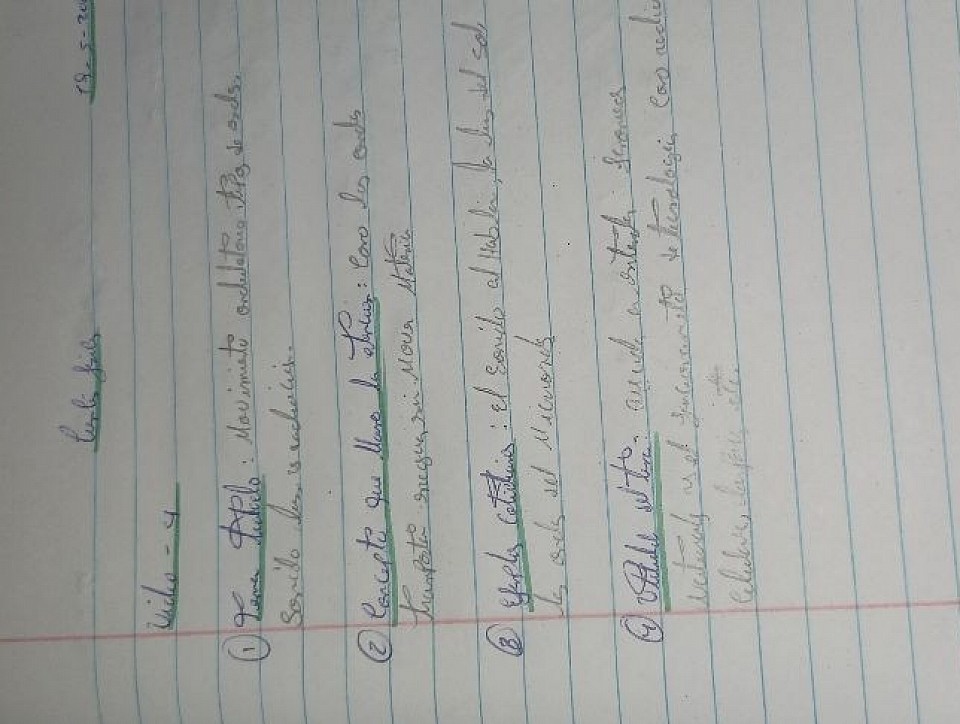 19-5-20
Video - 4
① Tema Título: Movimiento ondulatorio tipos de onda.
Sonido luz, y radiación.
② Concepto que Mueve la : Como las ondas
transporta energia, sin Mover Materia
③ Ejemplos Cotidianos: El Sonido al Hablar, la luz del sol
las ondas del Microondas
④ Utilidad del tema. ayuda a entender fenomenos
Naturales y el funcionamiento de tecnologia como radio
Celulares, etc.